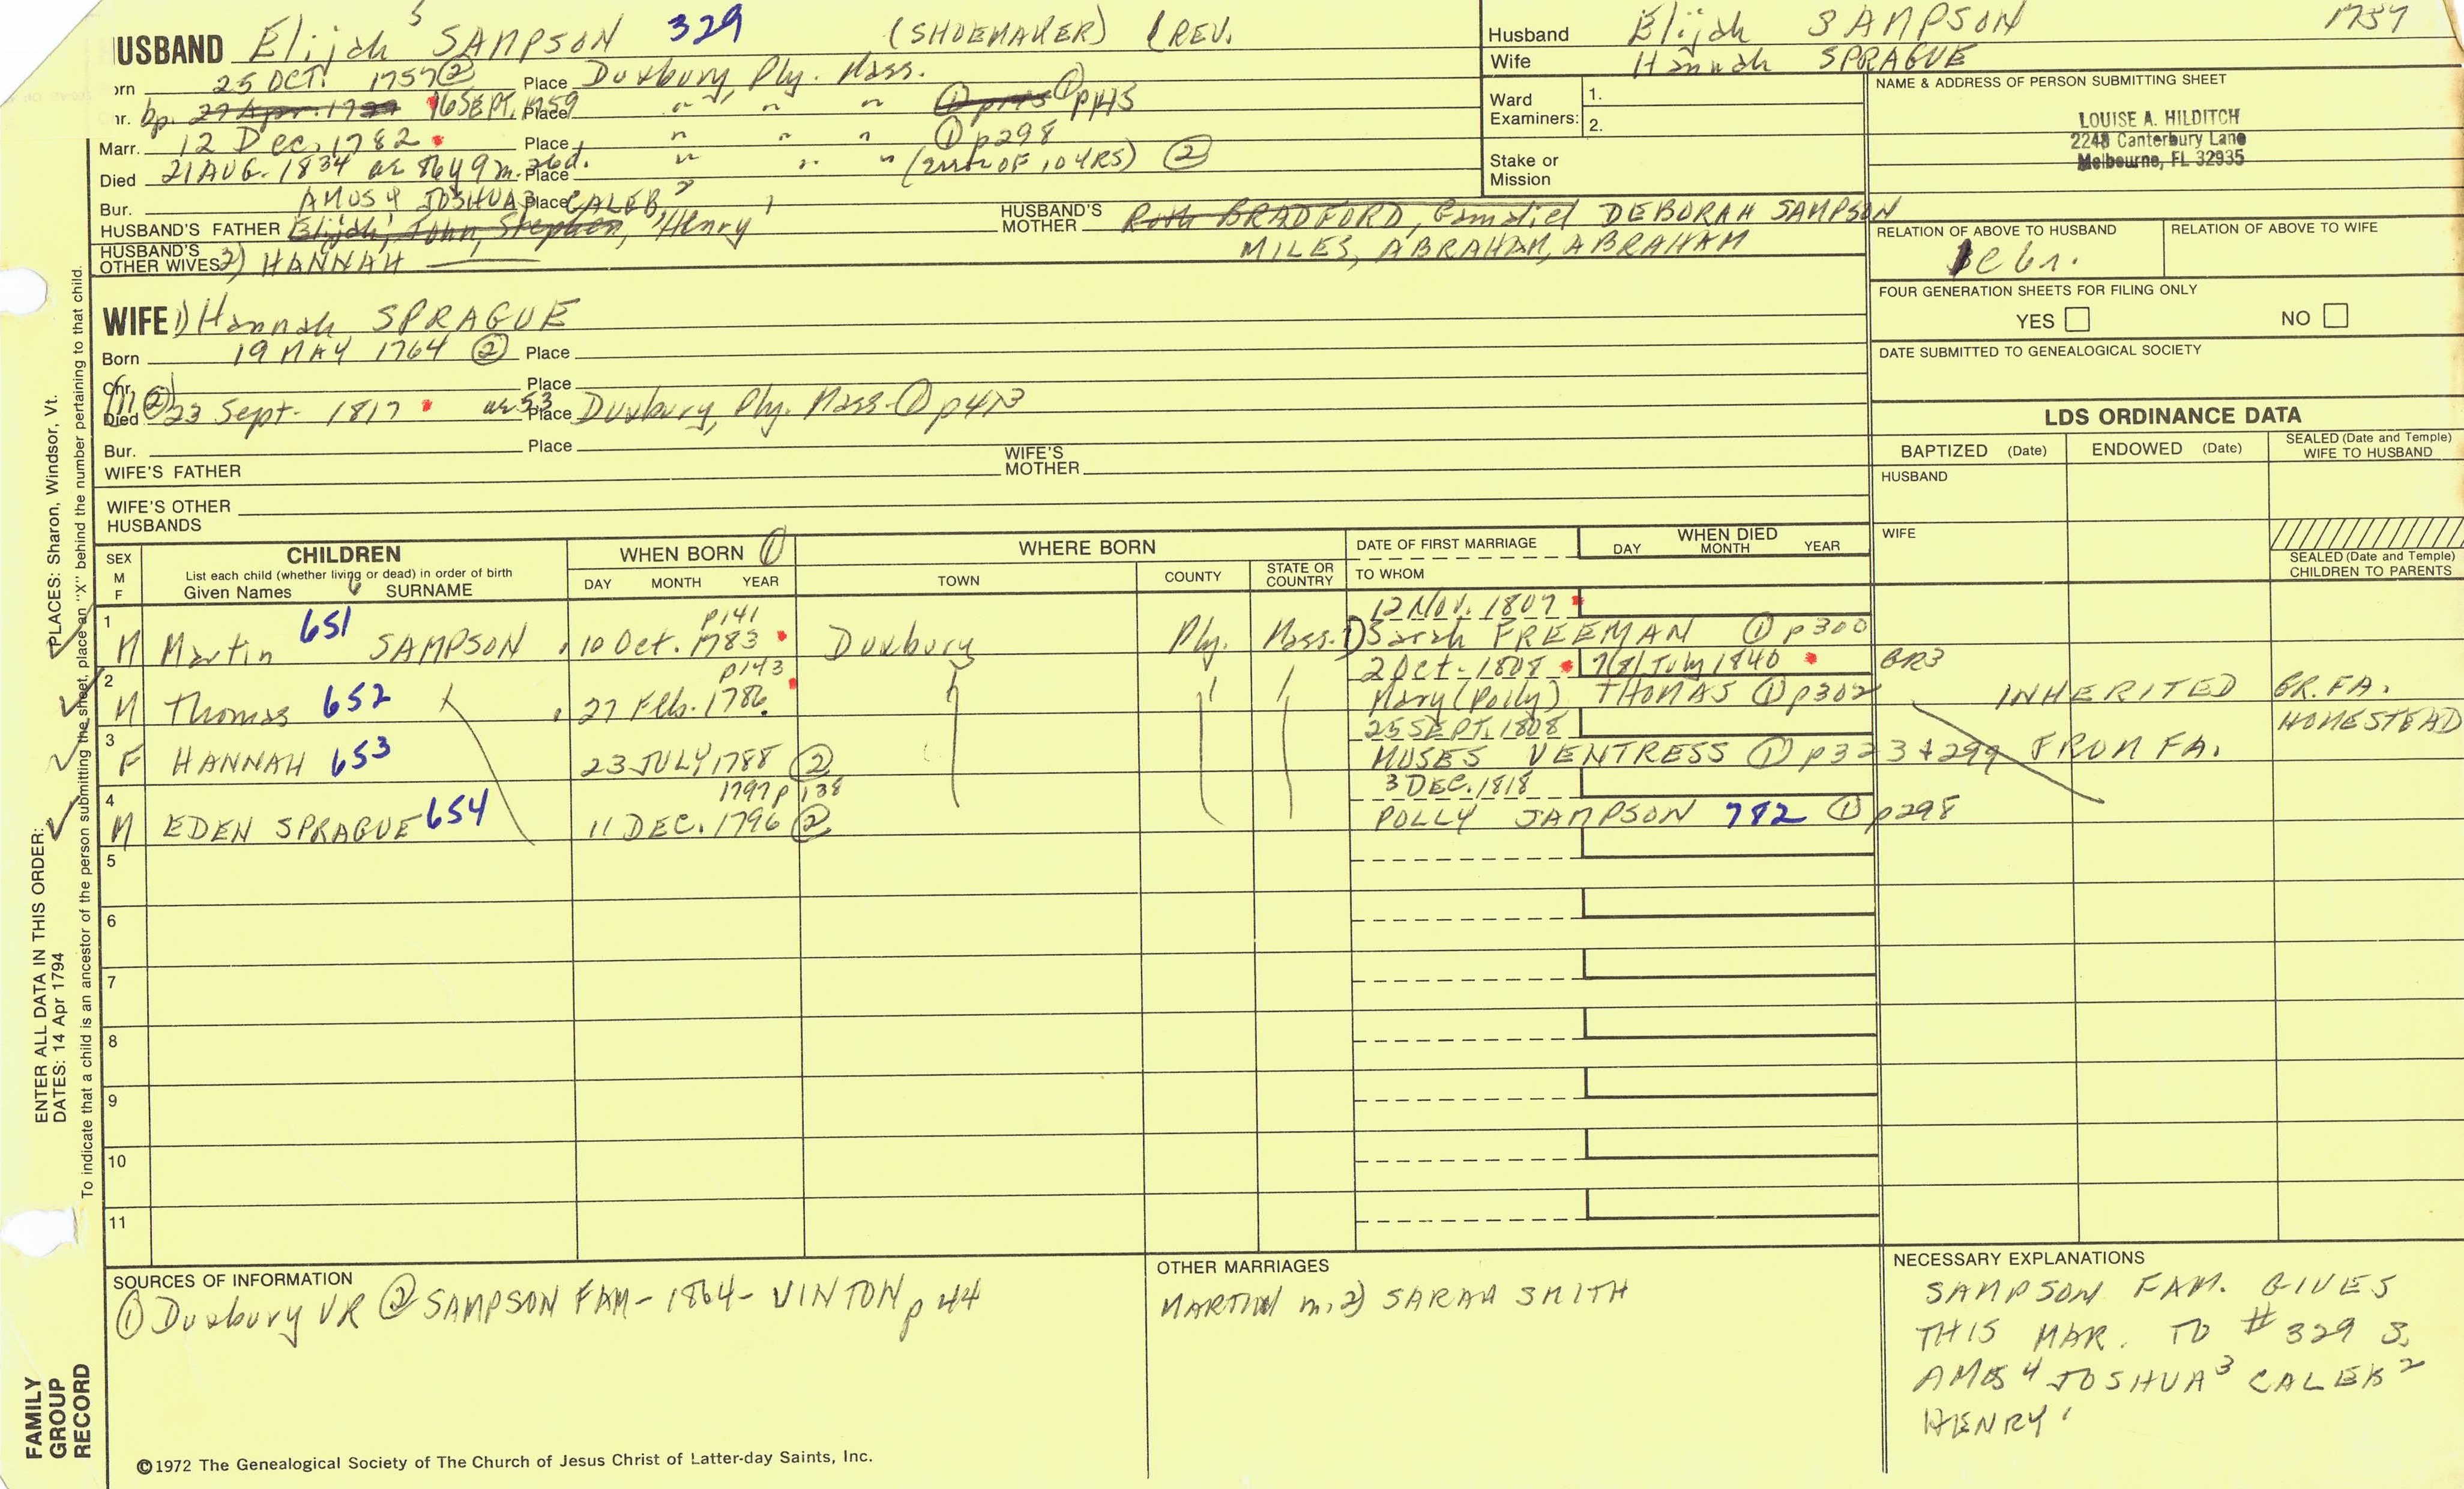 HUSBAND Elijah 5 SAMPSON 329 (SHOEMAKER) (REV.
orn 25 OCT. 1757 ② Place Duxbury, Ply. Mass.
hr. bp. 27 Apr. 16 SEPT. 1759 Place " " " ① p145 ① p143
Marr. 12 Dec. 1782 Place " " " ① p298
Died 21 AUG. 1834 ae 76y 9m. 26d. Place " " " (INM OF 10 YRS) ②
Bur. Place
AMOS 4 JOSHUA 3 CALEB 2
HUSBAND'S FATHER Elijah, John, Stephen, Henry 1
HUSBAND'S MOTHER Ruth BRADFORD, Gamaliel DEBORAH SAMPSON
MILES, ABRAHAM, ABRAHAM
HUSBAND'S OTHER WIVES 2) HANNAH
WIFE 1) Hannah SPRAGUE
Born 19 MAY 1764 ② Place
Chr. Place
Died ② 23 Sept. 1817 ae 53 Place Duxbury, Ply. Mass. ① p413
Bur. Place
WIFE'S FATHER
WIFE'S MOTHER
WIFE'S OTHER HUSBANDS
Husband Elijah SAMPSON 1757
Wife Hannah SPRAGUE
Ward Examiners: 1.
2.
Stake or Mission
NAME & ADDRESS OF PERSON SUBMITTING SHEET
LOUISE A. HILDITCH
2248 Canterbury Lane
Melbourne, FL 32935
RELATION OF ABOVE TO HUSBAND
RELATION OF ABOVE TO WIFE
FOUR GENERATION SHEETS FOR FILING ONLY
YES NO
DATE SUBMITTED TO GENEALOGICAL SOCIETY
LDS ORDINANCE DATA
BAPTIZED (Date) ENDOWED (Date) SEALED (Date and Temple) WIFE TO HUSBAND
HUSBAND
WIFE
SEALED (Date and Temple) CHILDREN TO PARENTS
SEX M F
CHILDREN
List each child (whether living or dead) in order of birth
Given Names 6 SURNAME
WHEN BORN ①
DAY MONTH YEAR
WHERE BORN
TOWN COUNTY STATE OR COUNTRY
DATE OF FIRST MARRIAGE
TO WHOM
WHEN DIED
DAY MONTH YEAR
1 M Martin 651 SAMPSON 10 Oct. 1783 p141 Duxbury Ply. Mass. 12 Nov. 1807
1) Sarah FREEMAN ① p300
2 M Thomas 652 X 27 Feb. 1786 p143 2 Oct. 1808 7(8) July 1840 GR3
Mary (Polly) THOMAS ① p302 INHERITED GR. FA. HOMESTEAD FROM FA.
3 F HANNAH 653 23 JULY 1788 ② 25 SEPT. 1808
MOSES VENTRESS ① p323 + 299
4 M EDEN SPRAGUE 654 11 DEC. 1796 ② 1797 p138 3 DEC. 1818
POLLY SAMPSON 782 ① p298
5
6
7
8
9
10
11
SOURCES OF INFORMATION
① Duxbury VR ② SAMPSON FAM - 1864 - VINTON p 44
OTHER MARRIAGES
MARTIN m. 2) SARAH SMITH
NECESSARY EXPLANATIONS
SAMPSON FAM. GIVES
THIS MAR. TO # 329 S.
AMOS 4 JOSHUA 3 CALEB 2
HENRY 1
©1972 The Genealogical Society of The Church of Jesus Christ of Latter-day Saints, Inc.
ENTER ALL DATA IN THIS ORDER:
DATES: 14 Apr 1794
PLACES: Sharon, Windsor, Vt.
To indicate that a child is an ancestor of the person submitting the sheet, place an "X" behind the number pertaining to that child.
FAMILY
GROUP
RECORD